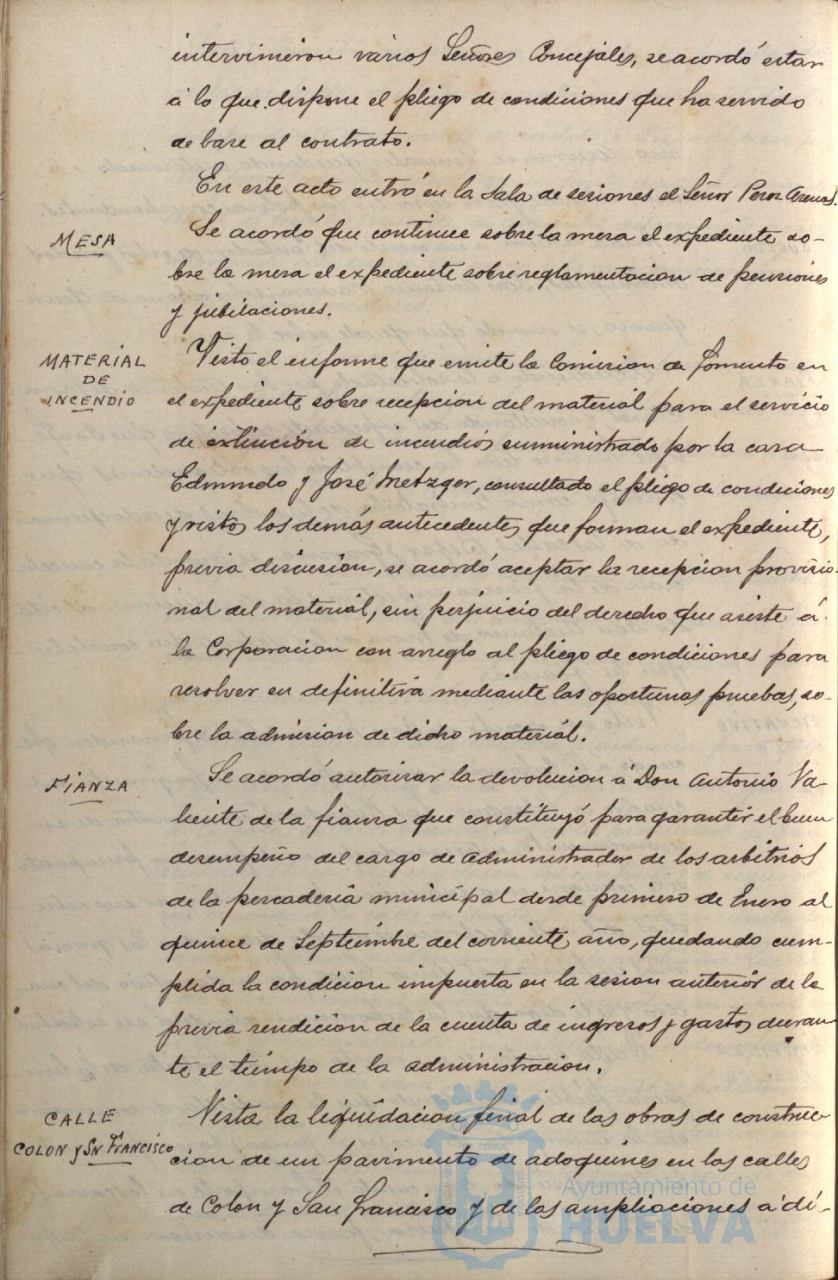 intervinieron varios Señores Concejales, se acordó estar
á lo que dispone el pliego de condiciones que ha servido
de base al contrato.
En este acto entró en la Sala de sesiones el Señor Perez Arenas.
MESA
Se acordó que continue sobre la mesa el expediente so-
bre la mesa el expediente sobre reglamentacion de pensiones
y jubilaciones.
MATERIAL
DE
INCENDIO
Visto el informe que emite la Comision de Fomento en
el expediente sobre recepcion del material para el servicio
de extinción de incendios suministrado por la casa
Edmundo y José Metzger, consultado el pliego de condiciones
y vistos los demás antecedentes que forman el expediente,
previa discusion, se acordó aceptar la recepcion provisio-
nal del material, sin perjuicio del derecho que asiste á
la Corporacion con arreglo al pliego de condiciones para
resolver en definitiva mediante las oportunas pruebas, so-
bre la admision de dicho material.
FIANZA
Se acordó autorizar la devolucion á Don Antonio Va-
liente de la fianza que constituyó para garantir el buen
desempeño del cargo de Administrador de los arbitrios
de la pescadería municipal desde primero de Enero al
quince de Septiembre del corriente año, quedando cum-
plida la condicion impuesta en la sesion anterior de la
previa rendicion de la cuenta de ingresos y gastos duran-
te el tiempo de la administracion.
CALLE
COLON y Sn FRANCISCO
Vista la liquidacion final de las obras de construc-
cion de un pavimento de adoquines en las calles
de Colon y San Francisco y de las ampliaciones á di-
Ayuntamiento de
HUELVA